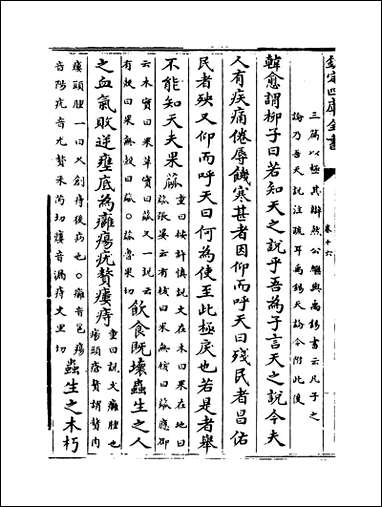 欽定四庫全書
卷十六
三篇以極其辯然公繼與禹錫書云凡子之
論乃吾天說注疏耳禹錫天論今附此後
韓愈謂柳子曰若知天之說乎吾為子言天之說今夫
人有疾痛倦辱饑寒甚者因仰而呼天曰殘民者昌佑
民者殃又仰而呼天曰何為使至此極戾也若是者舉
不能知天夫果蓏重曰按許慎説文在木曰果在地曰
蓏張晏云有核曰果無核曰蓏應劭
云木實曰果草實曰蓏又一説云
有殼曰果無殼曰蓏○蓏魯果切飲食既壞蟲生之人
之血氣敗逆壅底為癰瘍疣贅瘻痔重曰説文癰腫也
瘍頭瘡贅謂贅肉
瘻頸腫一曰久創痔後病也○癰音邕瘍
音陽疣音尤贅朱芮切瘻音漏痔丈里切蟲生之木朽